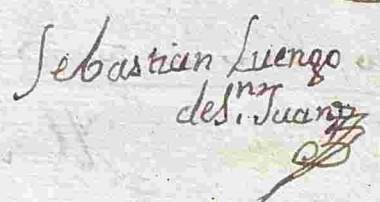 Sebastian Luengo
des.ⁿⁿ Juan